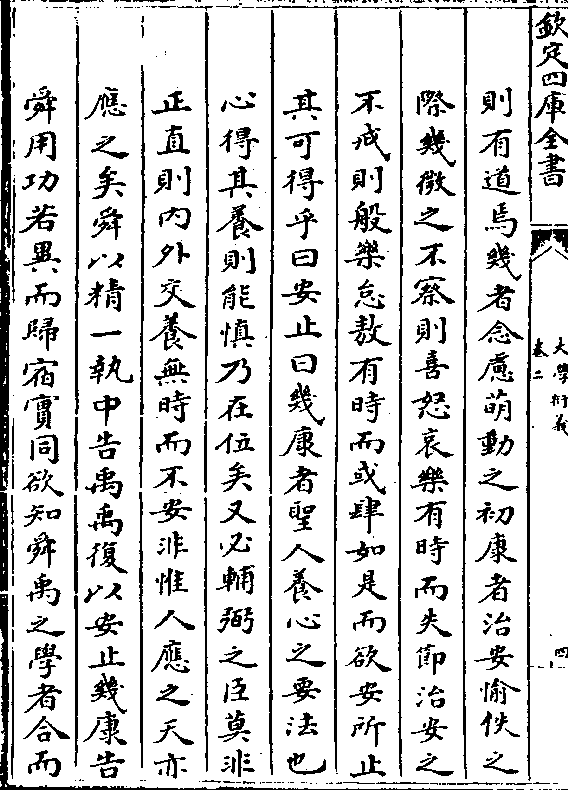 欽定四庫全書
大學衍義
卷二
四
則有道焉幾者念慮萌動之初康者治安愉佚之
際幾微之不察則喜怒哀樂有時而失節治安之
不戒則般樂怠敖有時而或肆如是而欲安所止
其可得乎曰安止曰幾康者聖人養心之要法也
心得其養則能慎乃在位矣又必輔弼之臣莫非
正直則内外交養無時而不安非惟人應之天亦
應之矣舜以精一執中告禹禹復以安止幾康告
舜用功若異而歸宿實同欲知舜禹之學者合而